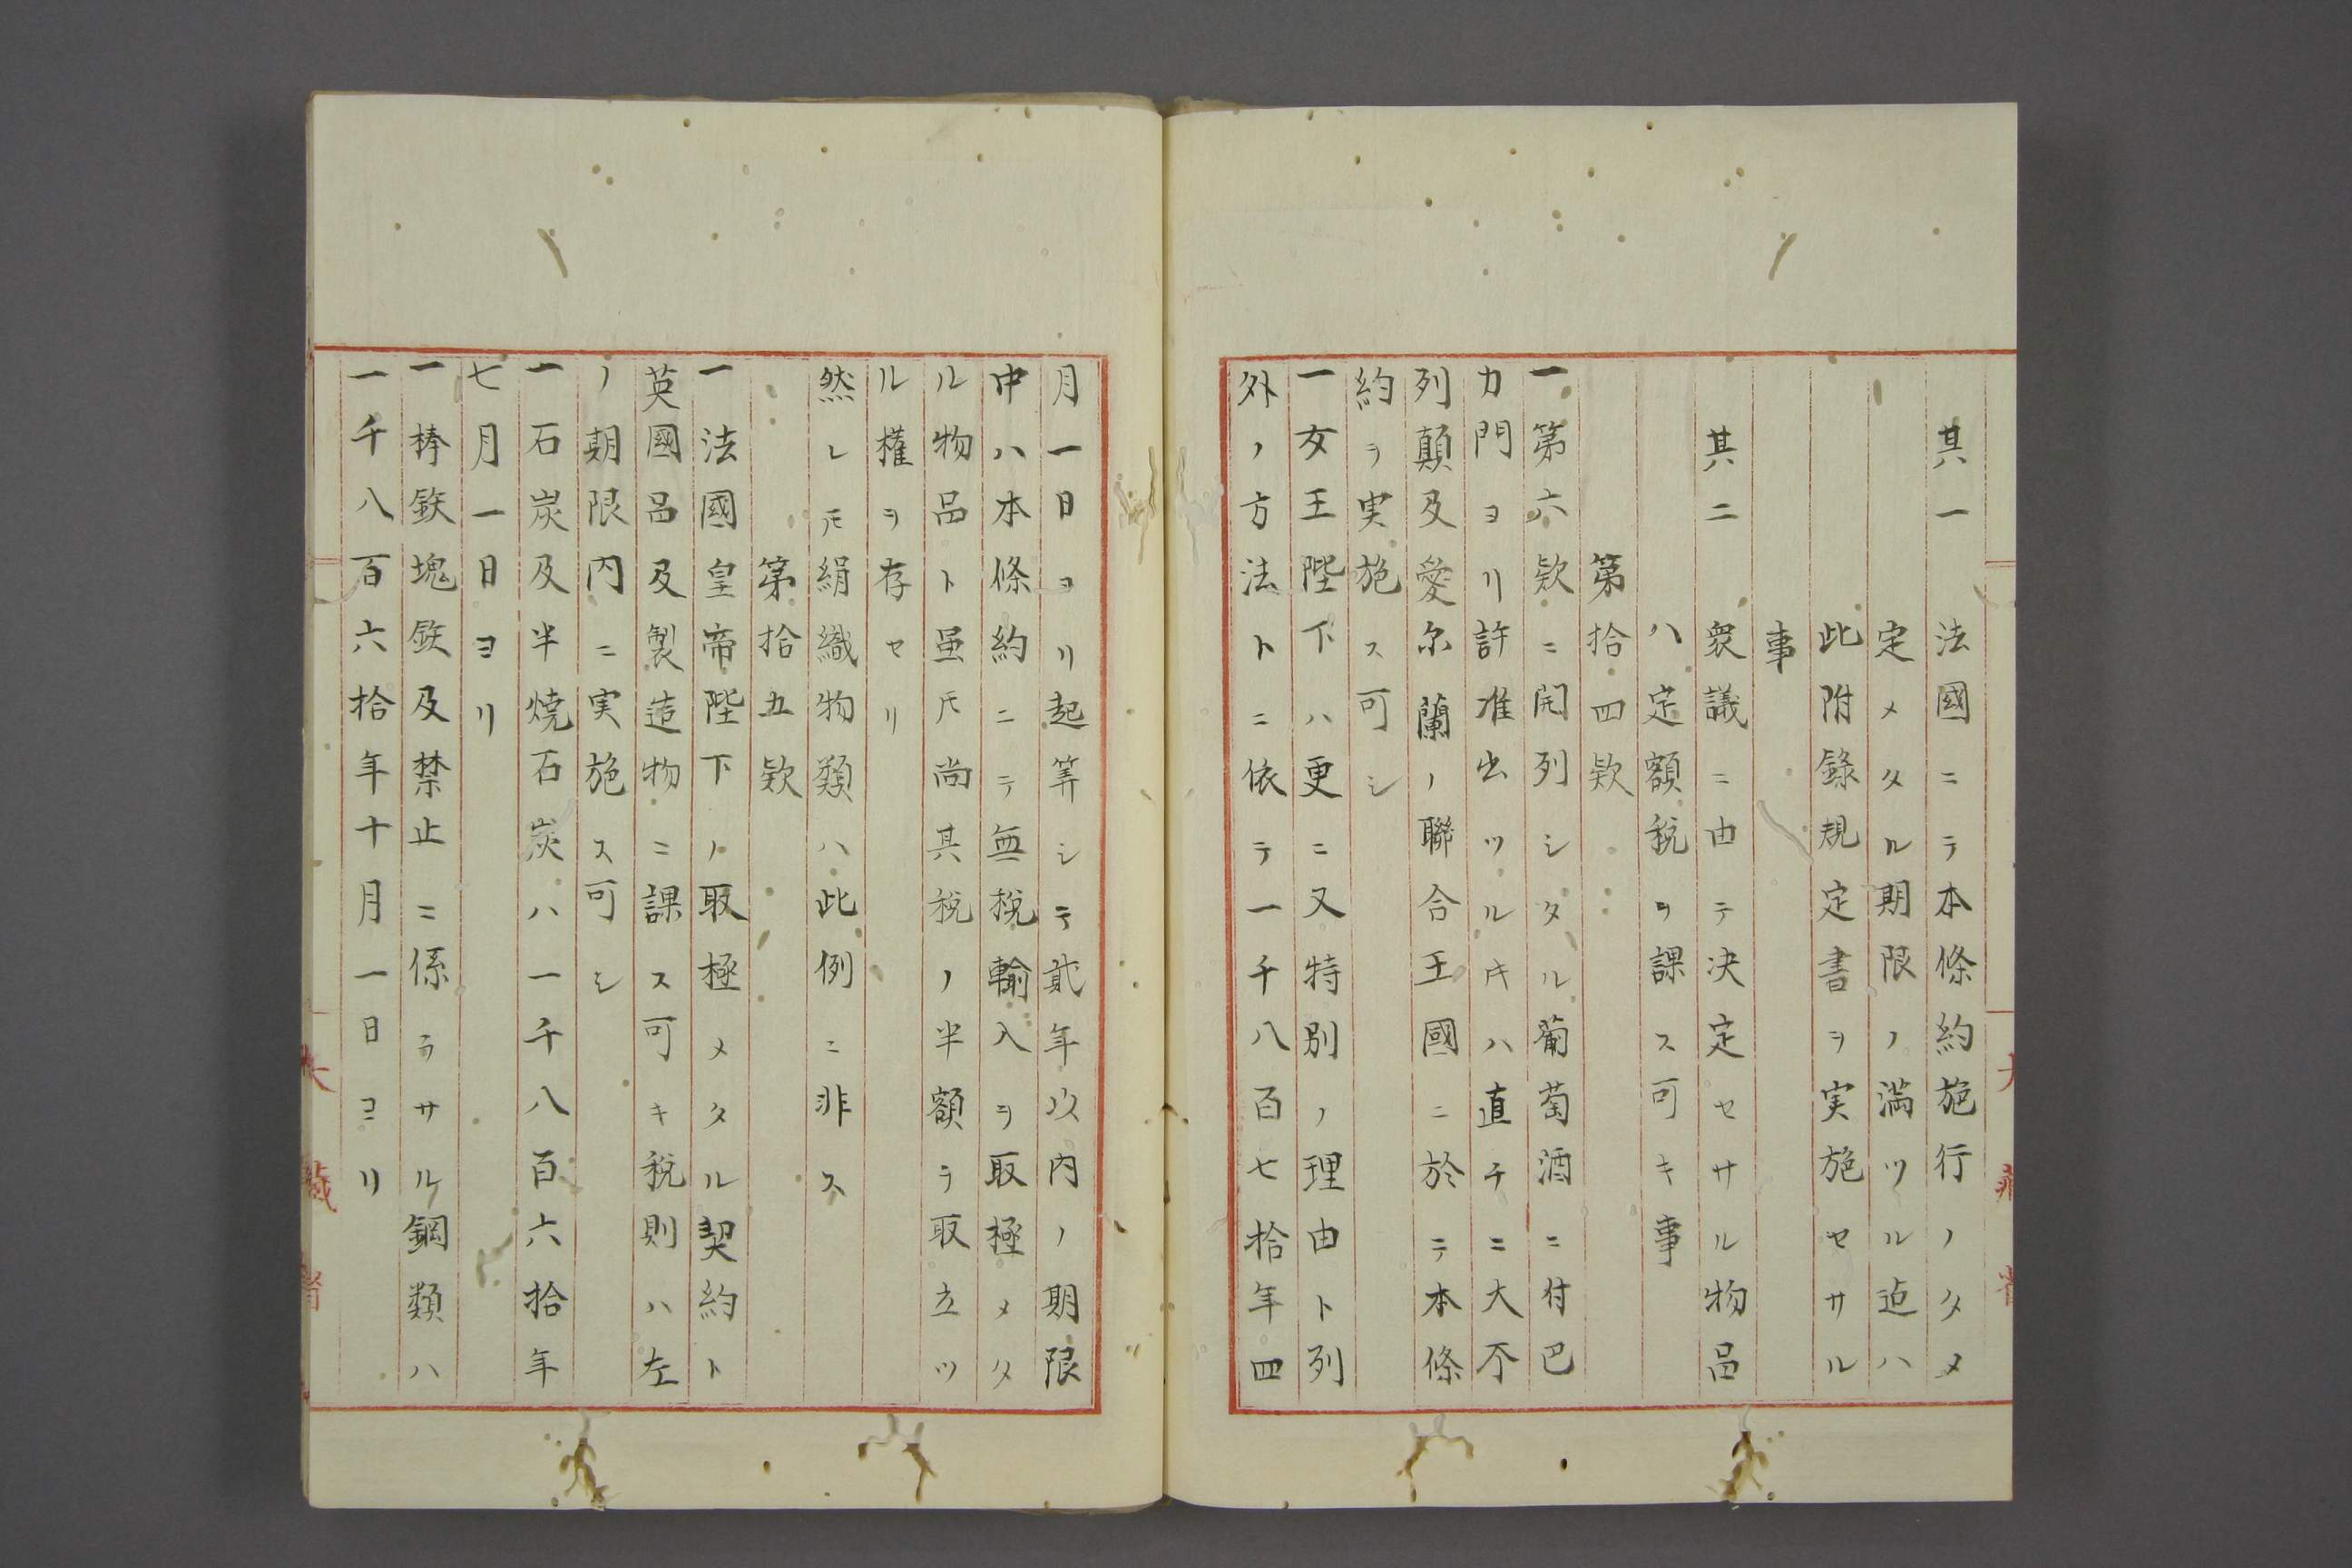 其一　法國ニテ本條約施行ノタメ
定メタル期限ノ満ツル迠ハ
此附錄規定書ヲ実施セサル
事
其二　衆議ニ由テ決定セサル物品
ハ定額税ヲ課ス可キ事
第拾四欵
一第六欵ニ開列シタル葡萄酒ニ付巴
力門ヨリ許准出ツルキハ直チニ大不
列顛及愛尓蘭ノ聯合王國ニ於テ本條
約ヲ実施ス可シ
一女王陛下ハ更ニ又特別ノ理由ト列
外ノ方法トニ依テ一千八百七拾年四
月一日ヨリ起筭シテ貳年以内ノ期限
中ハ本條約ニテ無税輸入ヲ取極メタ
ル物品ト虽𪜈尚其税ノ半額ヲ取立ツ
ル權ヲ存セリ
然レ𪜈絹織物類ハ此例ニ非ス
第拾五欵
一法國皇帝陛下ノ取極メタル契約ト
英國品及製造物ニ課ス可キ税則ハ左
ノ期限内ニ実施ス可シ
一石炭及半燒石炭ハ一千八百六拾年
七月一日ヨリ
一棒鉄塊鉄及禁止ニ係ラサル鋼類ハ
一千八百六拾年十月一日ヨリ
大藏省